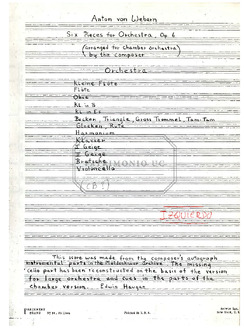 Anton von Webern
Six Pieces for Orchestra, Op. 6
(arranged for Chamber Orchestra)
by the composer
Orchestra
Kleine Flöte
Flöte
Oboe
Kl. in B
Kl. in Es
Becken, Triangle, Gross Trommel, Tam-Tam
Glocken, Rute
Harmonium
Klavier
I Geige
II Geige
Bratsche
Violoncello
PATRIMONIO UC
IZQUIERDO
This score was made from the composer's autograph
instrumental parts in the Moldenhauer Archive. The missing
'cello part has been reconstructed on the basis of the version
for large orchestra and cues in the parts of the
chamber version. Edwin Haugan
Printed in U.S.A.